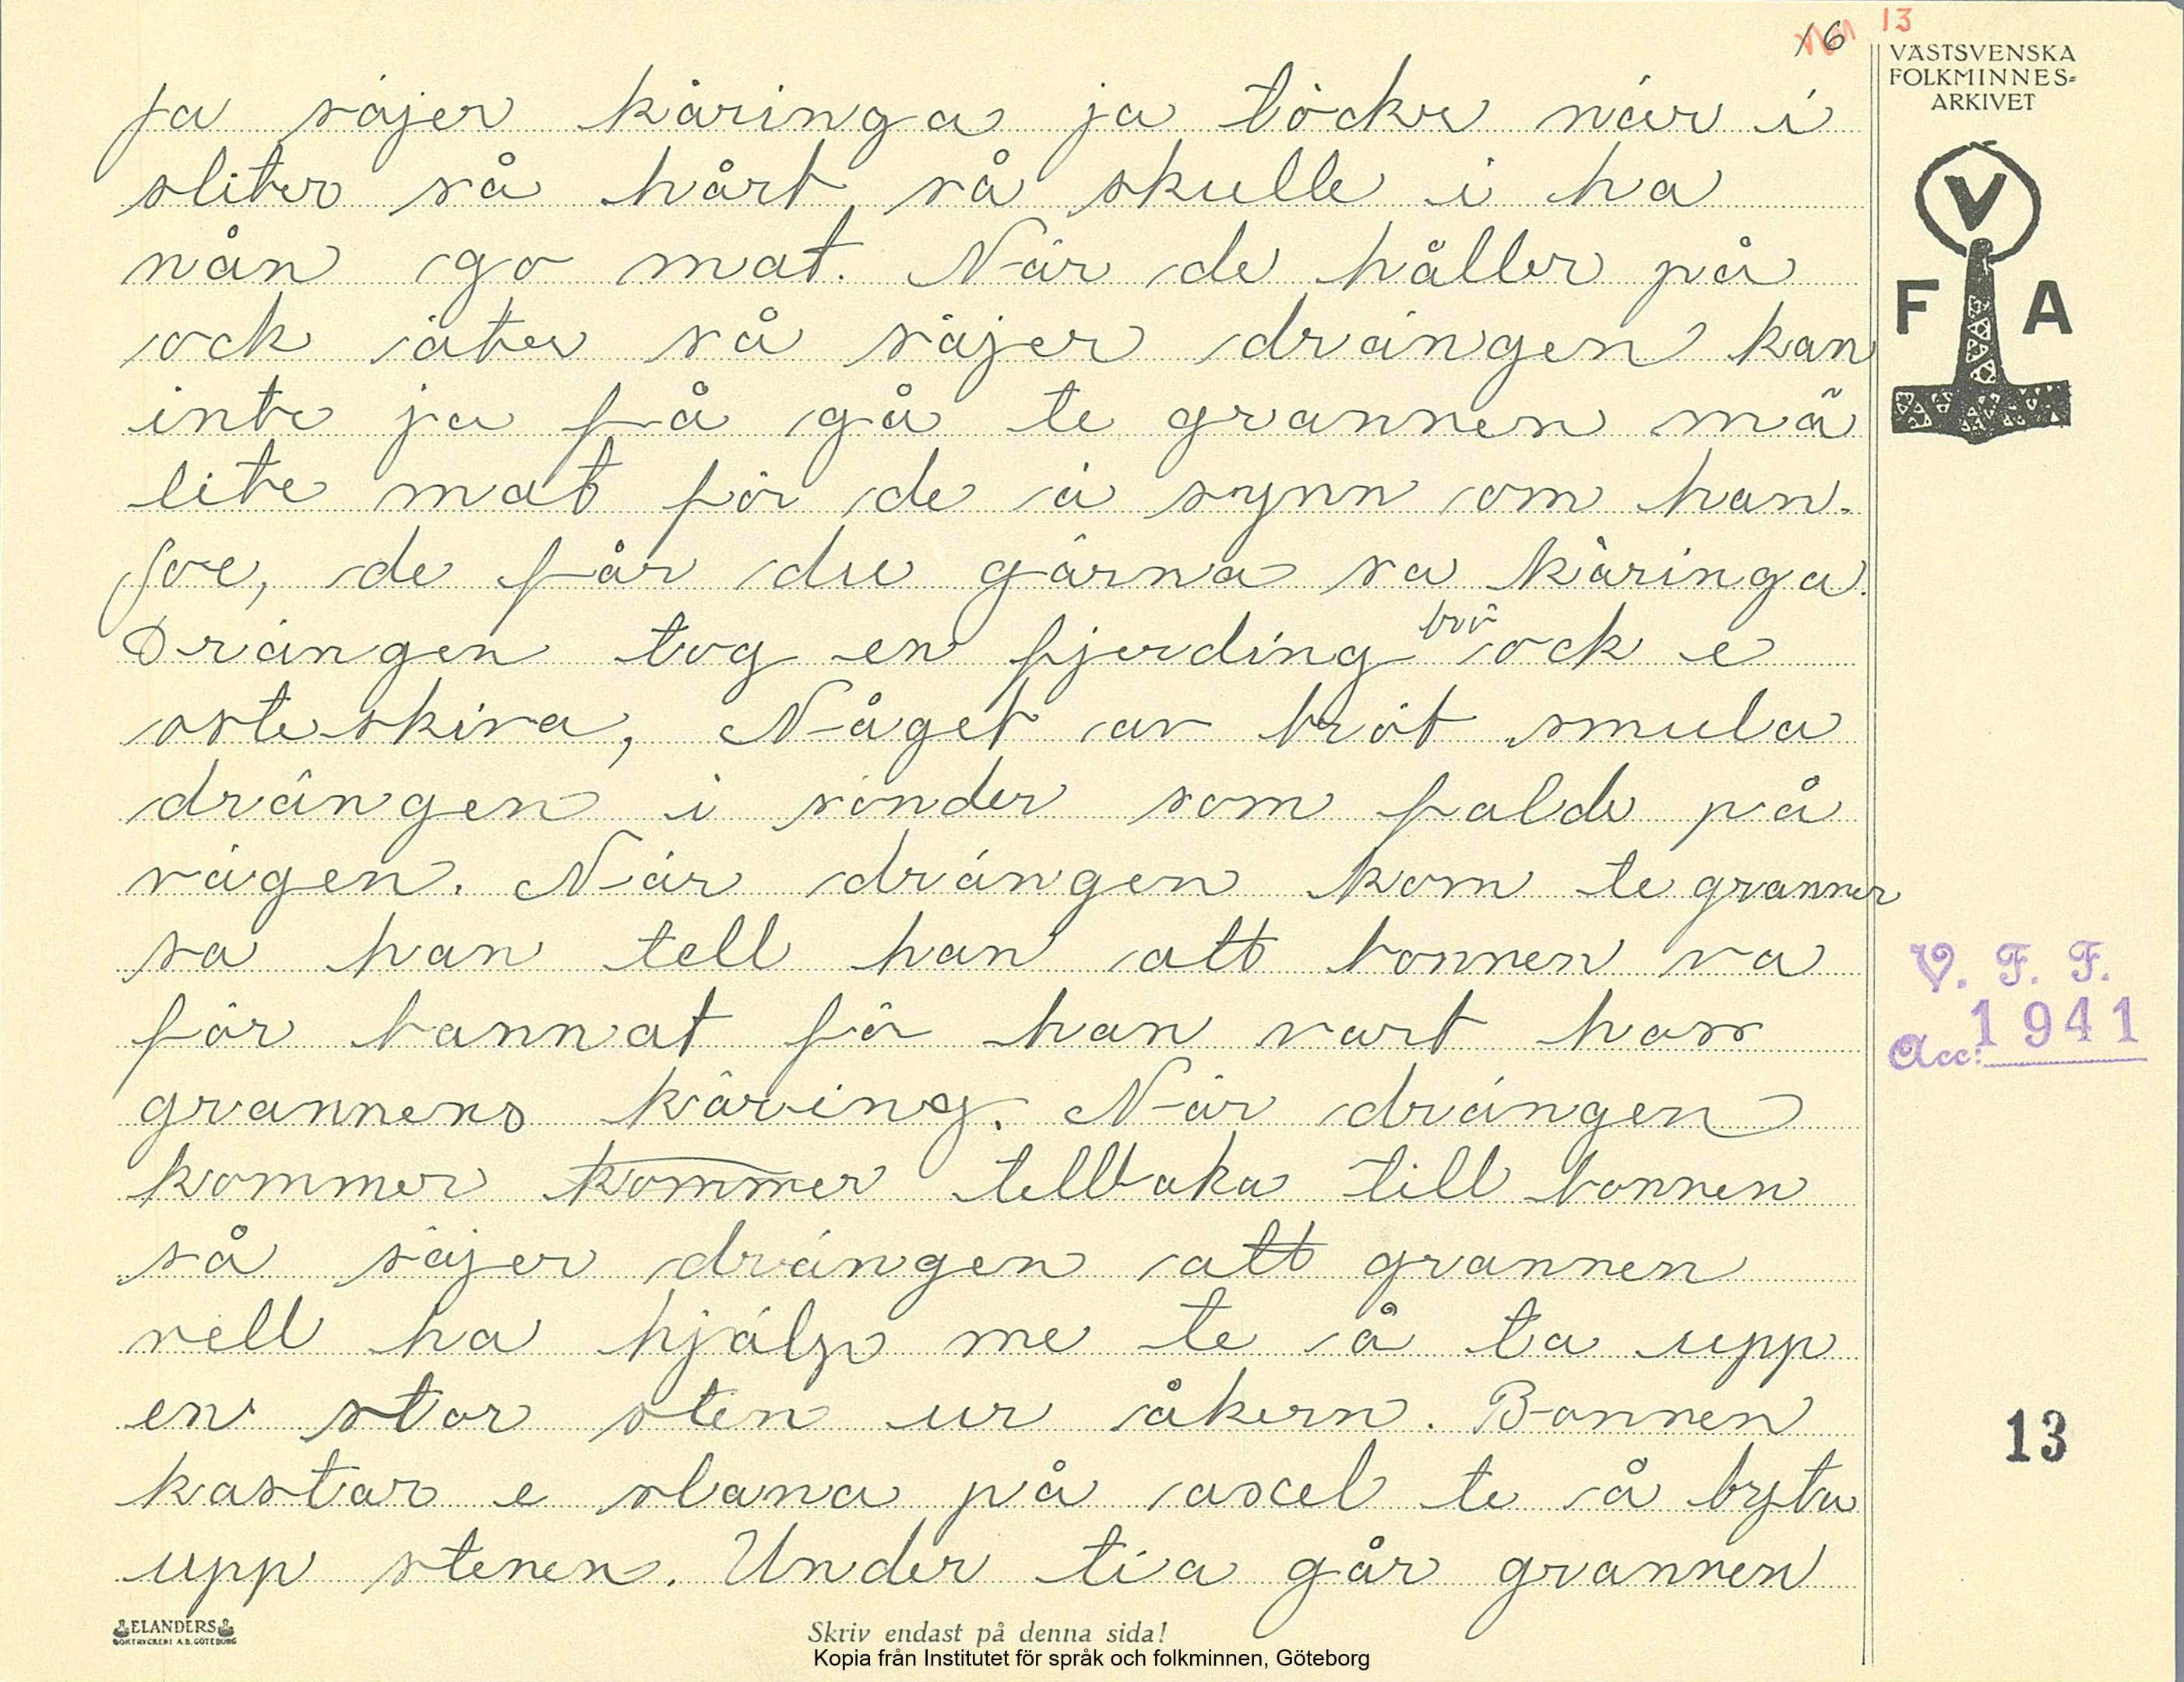 16 13
VÄSTSVENSKA
FOLKMINNES-
ARKIVET
V
F A
Ja säjer käringa ja töcke när i
sliter så hårt så skulle i ha
nån go mat. När de håller på
ock äter så säjer drängen kan
inte ja få gå te grannen mä
lite mat för de ä synn om han.
Joe, de får du gärna sa käringa.
Drängen tog en fjerding brö ock e
osteskiva, Något av bröt smula
drängen i sönder som falde på
vägen. När drängen kom te granner
sa han tell han att bonnen va
för bannat för han vart hoss
grannens käring. När drängen
kommer kommer tellbaka till bonnen
så säjer drängen att grannen
vell ha hjälp me te å ta upp
en stor sten ur åkern. Bonnen
kastar e slana på axel te å byta
upp stenen. Under tia går grannen
V. F. F.
Acc: 1941
13
ELANDERS
BOKTRYCKERI A.B. GÖTEBORG
Skriv endast på denna sida!
Kopia från Institutet för språk och folkminnen, Göteborg